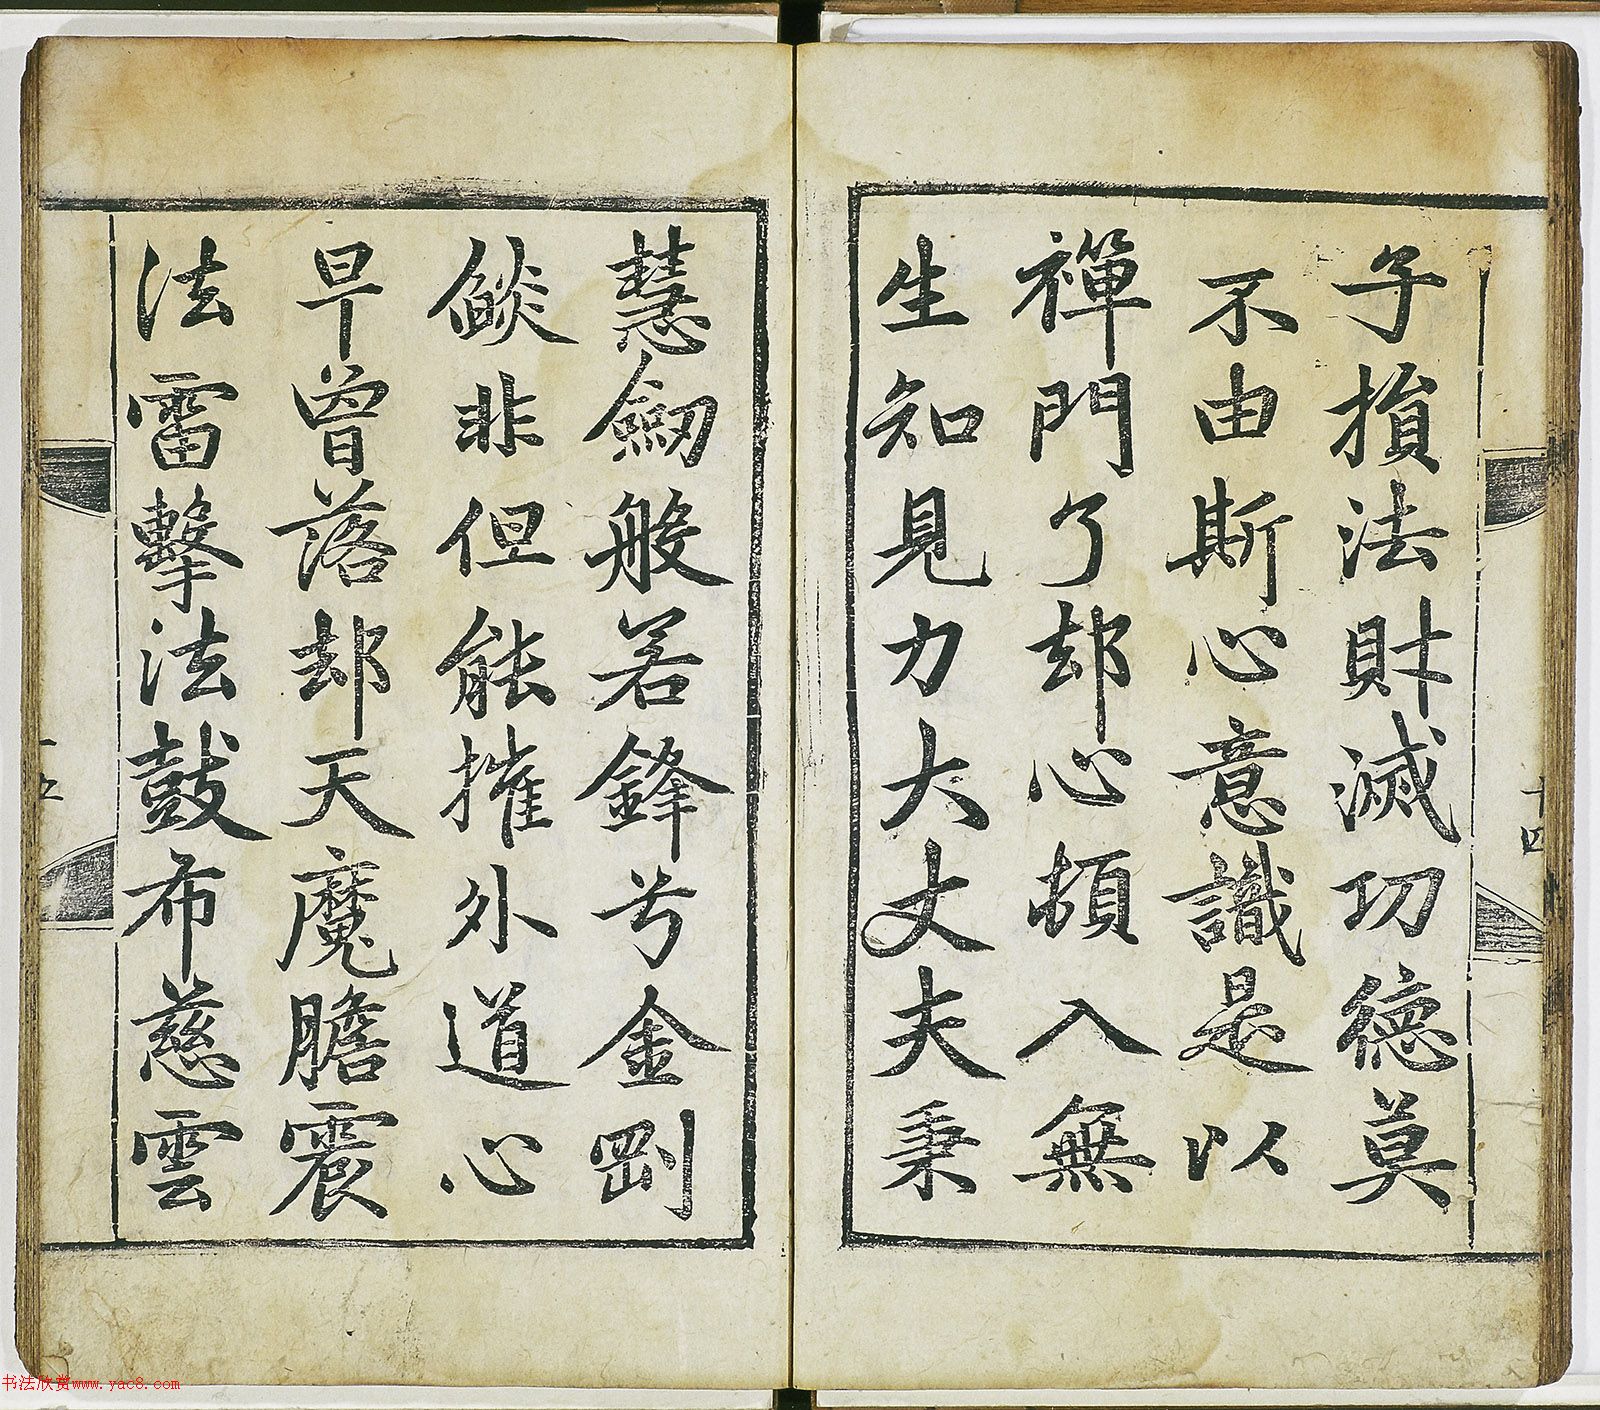 子損法財滅功德莫
不由斯心意識是以
禪門了却心頓入無
生知見力大丈夫秉
慧劒般若鋒兮金剛
燄非但能摧外道心
早曾落却天魔膽震
法雷擊法鼓布慈雲
十四
十五
书法欣赏www.yac8.com